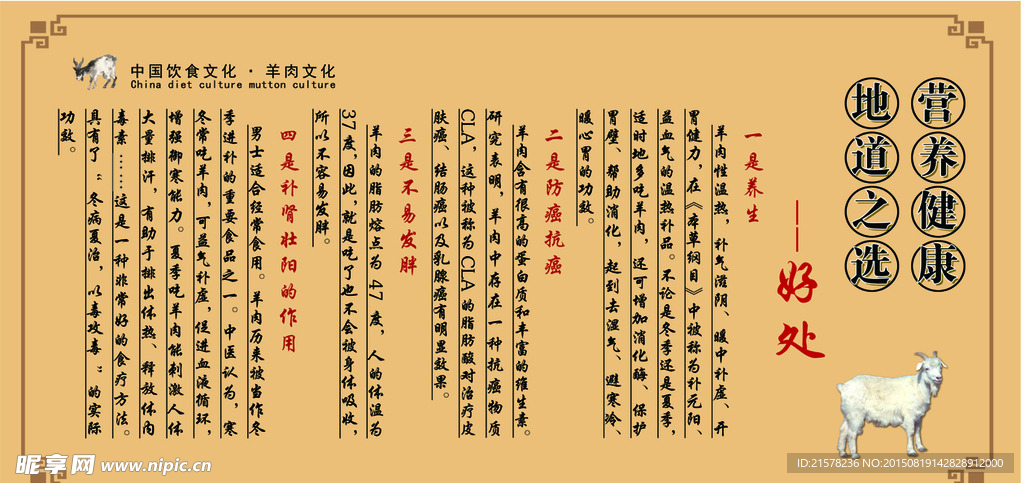 中国饮食文化 · 羊肉文化
China diet culture mutton culture
营养健康
地道之选
——好处
一是养生
羊肉性温热，补气滋阴、暖中补虚、开
胃健力，在《本草纲目》中被称为补元阳、
益血气的温热补品。不论是冬季还是夏季，
适时地多吃羊肉，还可增加消化酶、保护
胃壁、帮助消化，起到去湿气、避寒冷、
暖心胃的功效。
二是防癌抗癌
羊肉含有很高的蛋白质和丰富的维生素。
研究表明，羊肉中存在一种抗癌物质
CLA，这种被称为CLA的脂肪酸对治疗皮
肤癌、结肠癌以及乳腺癌有明显效果。
三是不易发胖
羊肉的脂肪熔点为 47 度，人的体温为
37度，因此，就是吃了也不会被身体吸收，
所以不容易发胖。
四是补肾壮阳的作用
男士适合经常食用。羊肉历来被当作冬
季进补的重要食品之一。中医认为，寒
冬常吃羊肉，可益气补虚，促进血液循环，
增强御寒能力。夏季吃羊肉能刺激人体
大量排汗，有助于排出体热、释放体内
毒素……这是一种非常好的食疗方法。
具有了“冬病夏治，以毒攻毒”的实际
功效。
昵享网 www.nipic.cn
ID:21578236 NO:20150819142828912000